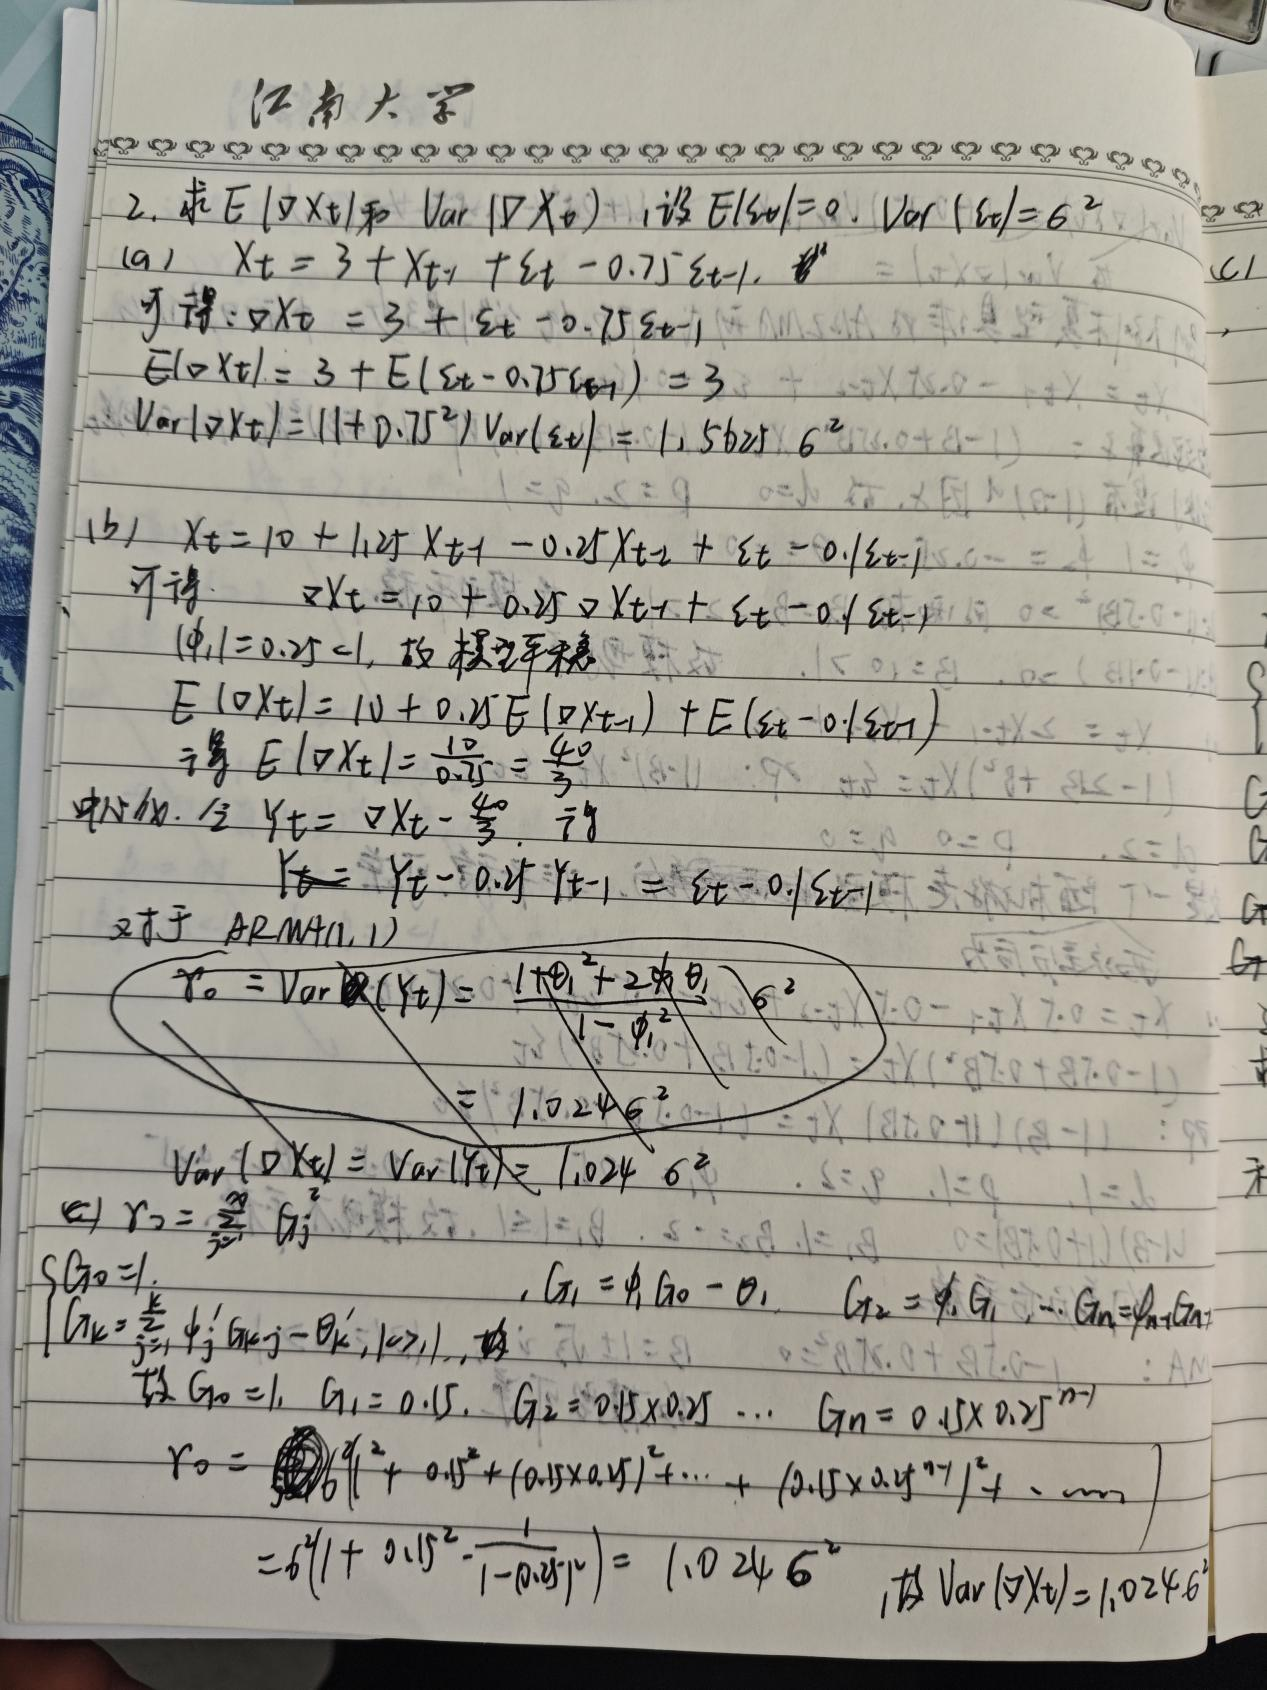 江南大学
2. 求 E(▽Xt) 和 Var(▽Xt), 设 E(εt)=0. Var(εt)=6²
(a) Xt = 3 + Xt-1 + εt - 0.75εt-1.
可得: ▽Xt = 3 + εt - 0.75εt-1
E(▽Xt) = 3 + E(εt - 0.75εt-1) = 3
Var(▽Xt) = (1+0.75²) Var(εt) = 1.5625 6²
(b) Xt = 10 + 1.25 Xt-1 - 0.25Xt-2 + εt - 0.1εt-1
可得. ▽Xt = 10 + 0.25 ▽Xt-1 + εt - 0.1εt-1
|φ1| = 0.25 <1, 故模型平稳
E(▽Xt) = 10 + 0.25 E(▽Xt-1) + E(εt - 0.1εt-1)
得 E(▽Xt) = 10/0.75 = 40/3
中心化. 令 Yt = ▽Xt - 40/3. 得
Yt = Yt - 0.25 Yt-1 = εt - 0.1εt-1
对于 ARMA(1,1)
r0 = Var (Yt) = (1+θ1²+2φ1θ1)/(1-φ1²) 6²
= 1.024 6²
Var(▽Xt) = Var(Yt) = 1.024 6²
(c) r0 = ∞Σj=1 Gj²
{G0=1.
Gk = kΣj=1 φj' Gk-j - θk', k≥1, 故
, G1 = φ1G0 - θ1 G2 = φ1G1 ... Gn = φn-1Gn-1
故 G0 = 1. G1 = 0.15. G2 = 0.15×0.25 ... Gn = 0.15×0.25ⁿ⁻¹
r0 = 6²(1² + 0.15² + (0.15×0.25)² + ... + (0.15×0.25ⁿ⁻¹)² + ......)
= 6²(1 + 0.15² · 1/(1-(0.25)²)) = 1.024 6²
, 故 Var(▽Xt) = 1.024 6²
(c)